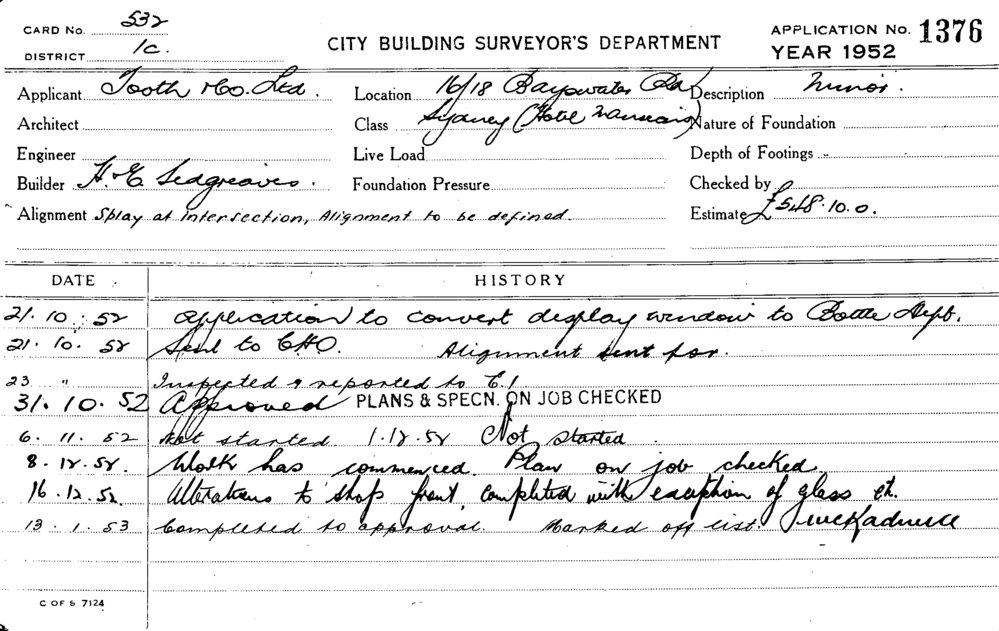 CARD No. 532
DISTRICT 1c.
CITY BUILDING SURVEYOR'S DEPARTMENT
APPLICATION No. 1376
YEAR 1952
Applicant Tooth & Co. Ltd. Location 16/18 Bayswater Rd Description Minor.
Architect Class Sydney (Hotel Mansions) Nature of Foundation
Engineer Live Load Depth of Footings
Builder H. E. Seagreaves. Foundation Pressure Checked by
Alignment Splay at intersection, Alignment to be defined. Estimate £548.10.0.
DATE HISTORY
21.10.52 Application to convert display window to Bottle Dept.
21.10.52 Sent to CHO. Alignment sent for.
23 " Inspected & reported to C.I
31.10.52 Approved PLANS & SPECN. ON JOB CHECKED
6.11.52 Not started 1.12.52 Not started
8.12.52. Work has commenced. Plan on job checked
16.12.52 Alterations to shop front completed with exception of glass etc.
13.1.53 Completed to approval. Marked off list.
C OF S 7124